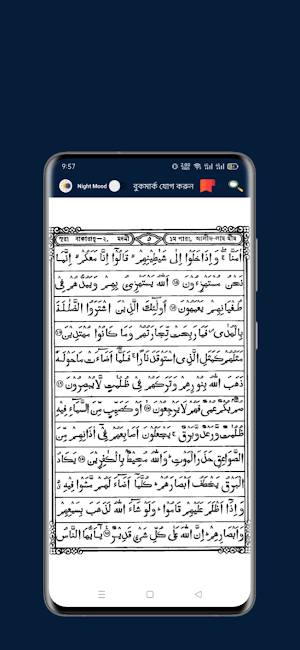 9:57
Night Mood
বুকমার্ক যোগ করুন
সূরা বাকারাহ-২, মদনী
১ম পারা, আলীফ-লাম মীম
اٰمَنَّا ۚ وَاِذَا خَلَوْا اِلٰى شَيٰطِيْنِهِمْ ۙ قَالُوْٓا اِنَّا مَعَكُمْ ۙ اِنَّمَا
نَحْنُ مُسْتَهْزِءُوْنَ ۝ اَللّٰهُ يَسْتَهْزِئُ بِهِمْ وَيَمُدُّهُمْ فِيْ
طُغْيَانِهِمْ يَعْمَهُوْنَ ۝ اُولٰٓئِكَ الَّذِيْنَ اشْتَرَوُا الضَّلٰلَةَ
بِالْهُدٰى ۪ فَمَا رَبِحَتْ تِّجَارَتُهُمْ وَمَا كَانُوْا مُهْتَدِيْنَ ۝
مَثَلُهُمْ كَمَثَلِ الَّذِى اسْتَوْقَدَ نَارًا ۚ فَلَمَّآ اَضَآءَتْ مَا حَوْلَهٗ
ذَهَبَ اللّٰهُ بِنُوْرِهِمْ وَتَرَكَهُمْ فِيْ ظُلُمٰتٍ لَّا يُبْصِرُوْنَ ۝
صُمٌّۢ بُكْمٌ عُمْيٌ فَهُمْ لَا يَرْجِعُوْنَ ۝ اَوْ كَصَيِّبٍ مِّنَ السَّمَآءِ فِيْهِ
ظُلُمٰتٌ وَّرَعْدٌ وَّبَرْقٌ ۚ يَجْعَلُوْنَ اَصَابِعَهُمْ فِيْٓ اٰذَانِهِمْ مِّنَ
الصَّوَاعِقِ حَذَرَ الْمَوْتِ ؕ وَاللّٰهُ مُحِيْطٌۢ بِالْكٰفِرِيْنَ ۝ يَكَادُ
الْبَرْقُ يَخْطَفُ اَبْصَارَهُمْ ؕ كُلَّمَآ اَضَآءَ لَهُمْ مَّشَوْا فِيْهِ ۙ
وَاِذَآ اَظْلَمَ عَلَيْهِمْ قَامُوْا ؕ وَلَوْ شَآءَ اللّٰهُ لَذَهَبَ بِسَمْعِهِمْ
وَاَبْصَارِهِمْ ؕ اِنَّ اللّٰهَ عَلٰى كُلِّ شَيْءٍ قَدِيْرٌ ۝ يٰٓاَيُّهَا النَّاسُ